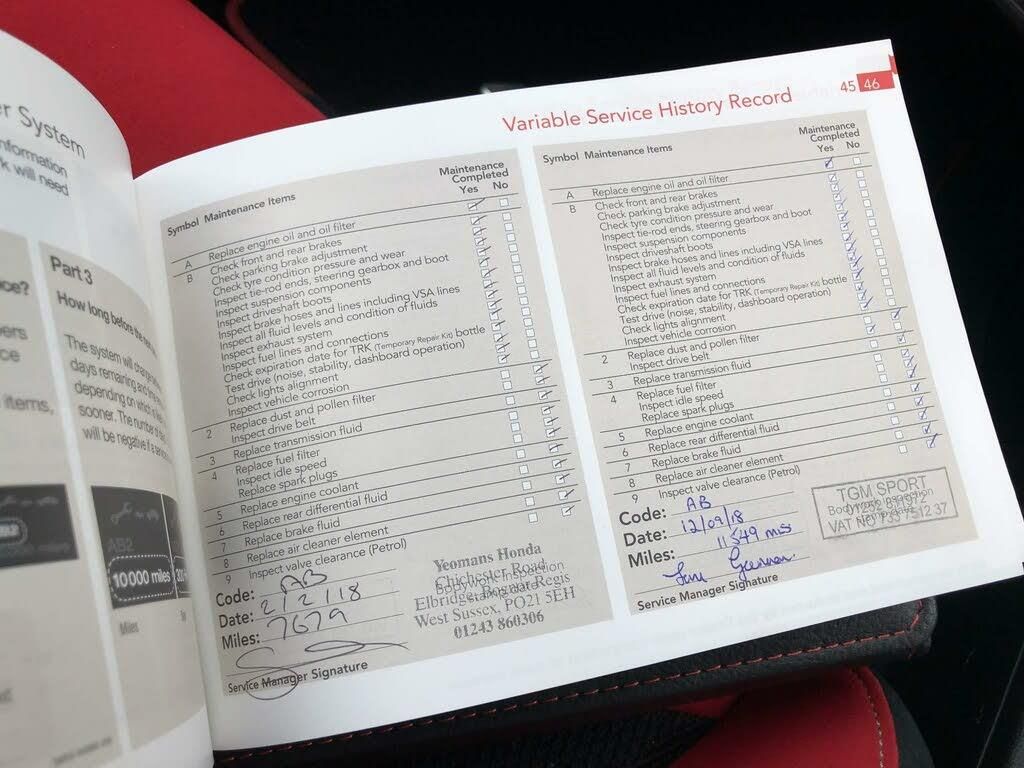 er System
nformation
k will need
ce?
ers
ce
items,
Part 3
How long before the
The system will change
days remaining and
depending on which is
sooner. The number of
will be negative if a
AB2
10 000 miles
Miles
Variable Service History Record
45 46
Symbol Maintenance Items
Maintenance
Completed
Yes No
A Replace engine oil and oil filter
B Check front and rear brakes
Check parking brake adjustment
Check tyre condition pressure and wear
Inspect tie-rod ends, steering gearbox and boot
Inspect suspension components
Inspect driveshaft boots
Inspect brake hoses and lines including VSA lines
Inspect all fluid levels and condition of fluids
Inspect exhaust system
Inspect fuel lines and connections
Check expiration date for TRK (Temporary Repair Kit) bottle
Test drive (noise, stability, dashboard operation)
Check lights alignment
Inspect vehicle corrosion
2 Replace dust and pollen filter
Inspect drive belt
3 Replace transmission fluid
4 Replace fuel filter
Inspect idle speed
Replace spark plugs
5 Replace engine coolant
6 Replace rear differential fluid
7 Replace brake fluid
8 Replace air cleaner element
9 Inspect valve clearance (Petrol)
Code: AB
Date: 2/2/18
Miles: 7679
Service Manager Signature
Yeomans Honda
Chichester Road
Elbridge, Bognor Regis
West Sussex, PO21 5EH
01243 860306
Symbol Maintenance Items
Maintenance
Completed
Yes No
A Replace engine oil and oil filter
B Check front and rear brakes
Check parking brake adjustment
Check tyre condition pressure and wear
Inspect tie-rod ends, steering gearbox and boot
Inspect suspension components
Inspect driveshaft boots
Inspect brake hoses and lines including VSA lines
Inspect all fluid levels and condition of fluids
Inspect exhaust system
Inspect fuel lines and connections
Check expiration date for TRK (Temporary Repair Kit) bottle
Test drive (noise, stability, dashboard operation)
Check lights alignment
Inspect vehicle corrosion
2 Replace dust and pollen filter
Inspect drive belt
3 Replace transmission fluid
4 Replace fuel filter
Inspect idle speed
Replace spark plugs
5 Replace engine coolant
6 Replace rear differential fluid
7 Replace brake fluid
8 Replace air cleaner element
9 Inspect valve clearance (Petrol)
Code: AB
Date: 12/09/18
Miles: 11549 mls
Service Manager Signature
TGM SPORT
Bodywork Inspection
VAT No 733 7512 37